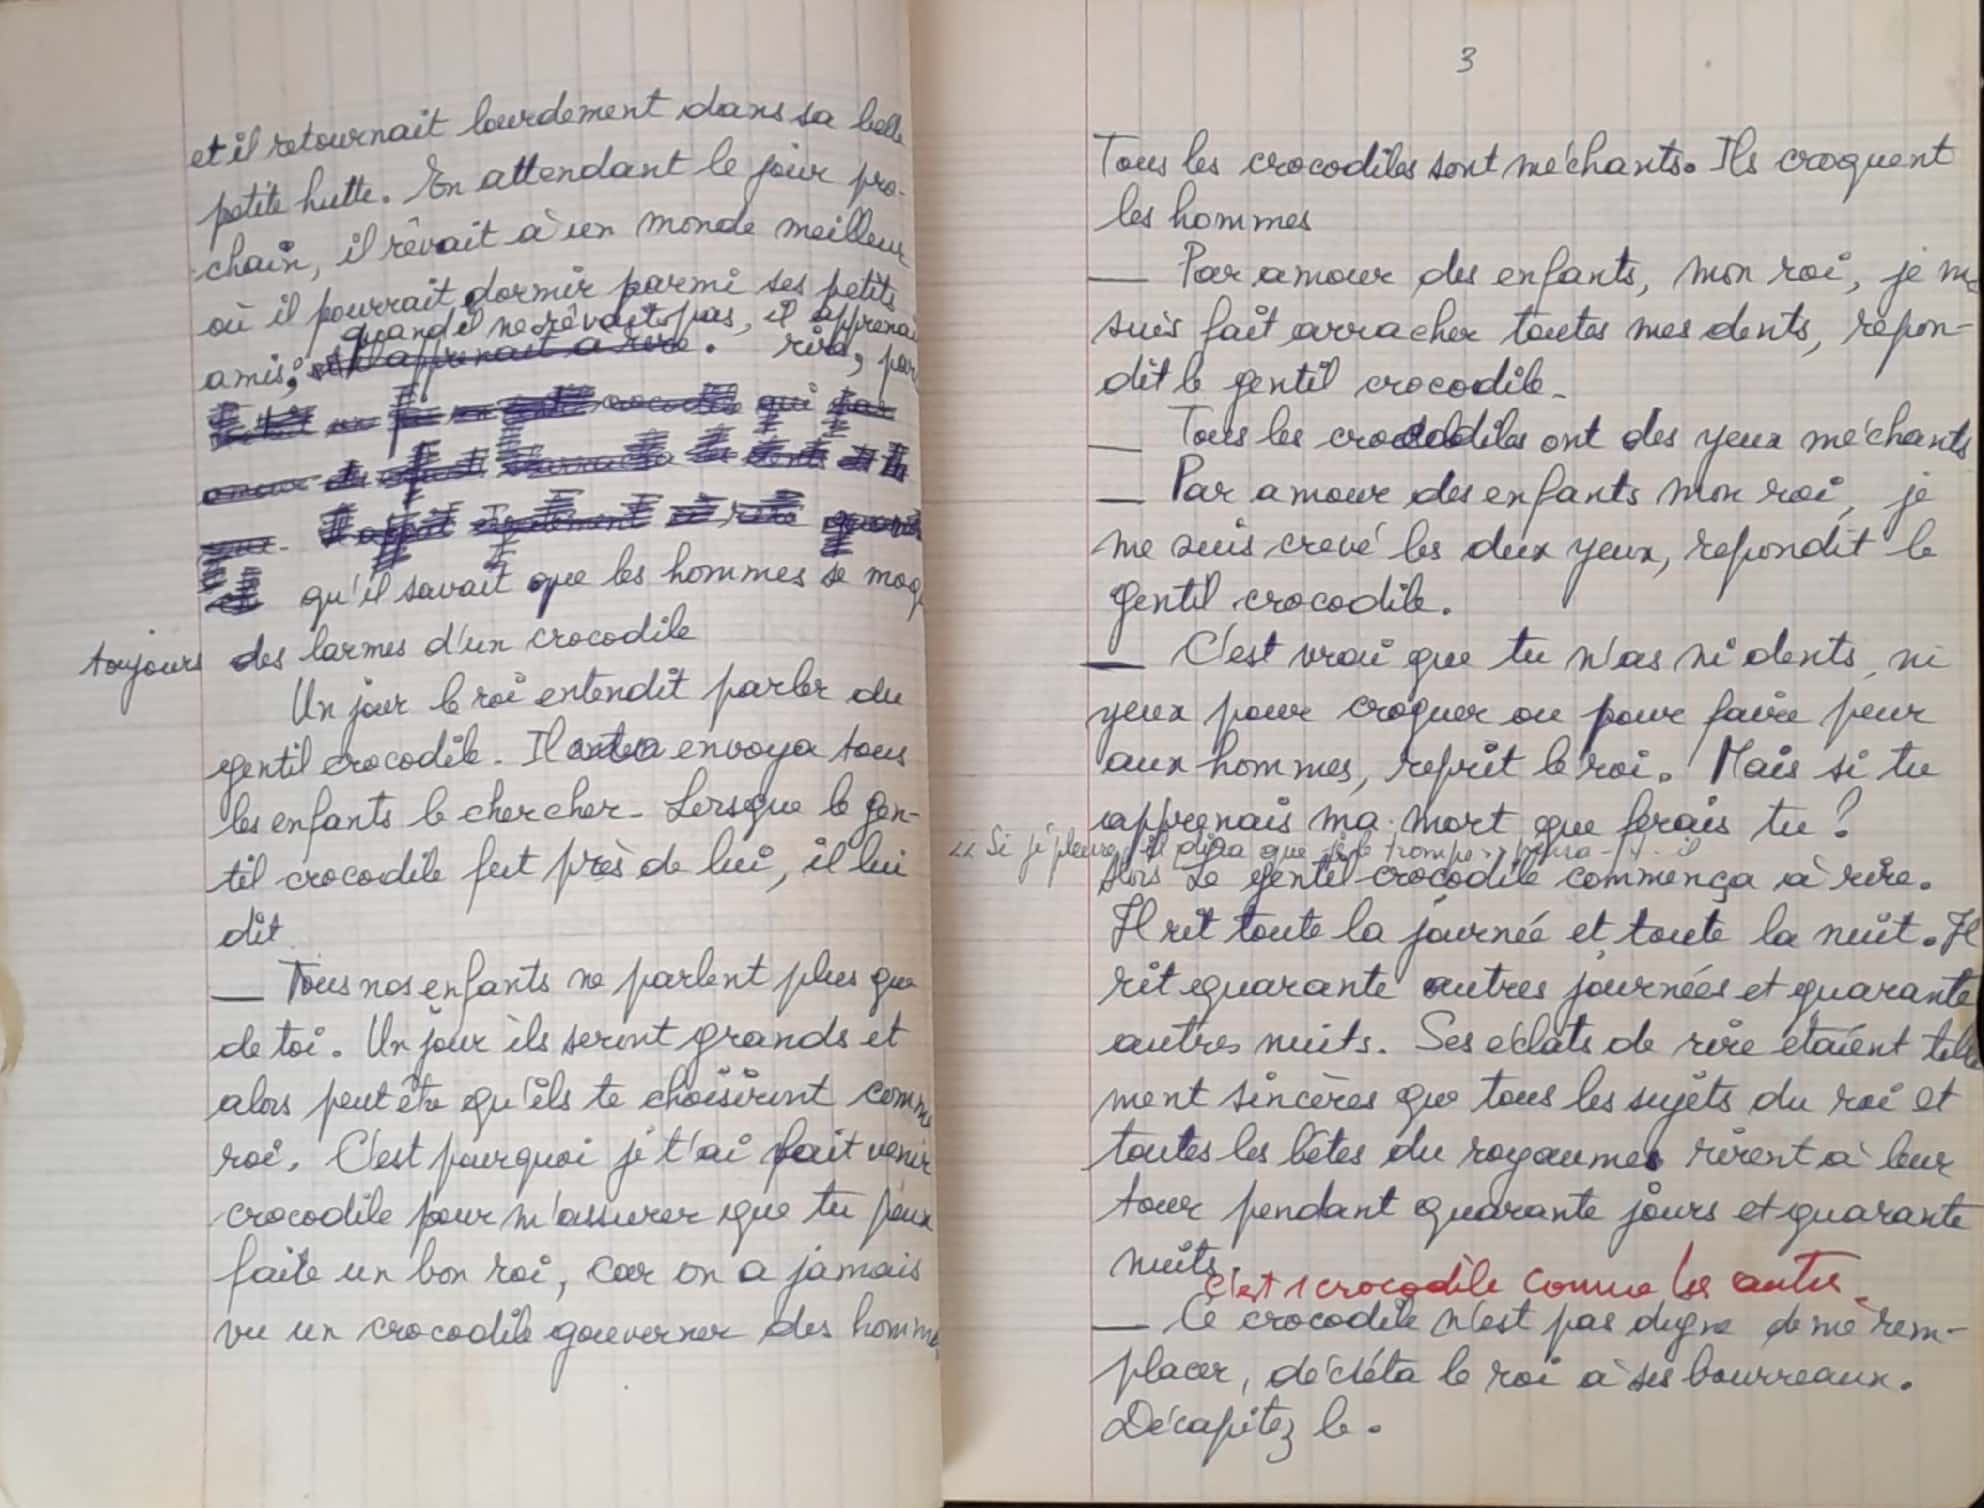 et il retournait lourdement dans sa belle
petite hutte. En attendant le jour pro-
chain, il rêvait à un monde meilleur
où il pourrait dormir parmi ses petits
quand il ne rêvait pas, il apprenai
amis; il apprenait a rire. rire, par
crocodile qui par
amour des arracha les dents
également
qu'il savait que les hommes se moq
toujours des larmes d'un crocodile
Un jour le roi entendit parler du
gentil crocodile. Il envoya tous
les enfants le chercher. Lorsque le gen-
til crocodile fut près de lui, il lui
dit
— Tous nos enfants ne parlent plus que
de toi. Un jour ils seront grands et
alors peut être qu'ils te choisiront comme
roi. C'est pourquoi je t'ai fait venir
crocodile pour m'assurer que tu peux
faite un bon roi, car on a jamais
vu un crocodile gouverner des hommes
3
Tous les crocodiles sont méchants. Ils croquent
les hommes
— Par amour des enfants, mon roi, je me
suis fait arracher toutes mes dents, répon-
dit le gentil crocodile.
— Tous les crocodiles ont des yeux méchants
— Par amour des enfants mon roi, je
me suis crevé les deux yeux, repondit le
gentil crocodile.
— C'est vrai que tu n'as ni dents, ni
yeux pour croquer ou pour faire peur
aux hommes, reprit le roi. Mais si tu
apprenais ma mort que ferais tu ?
"Si je pleure, il dira que je le trompe" pensa-t-il
Alors Le gentil crocodile commença à rire.
Il rit toute la journée et toute la nuit. Il
rit quarante autres journées et quarante
autres nuits. Ses éclats de rire étaient telle
ment sincères que tous les sujets du roi et
toutes les bêtes du royaume rirent à leur
tour pendant quarante jours et quarante
nuits.
C'est 1 crocodile comme les autres.
— Ce crocodile n'est pas digne de me rem-
placer, décréta le roi à ses bourreaux.
Décapitez le.